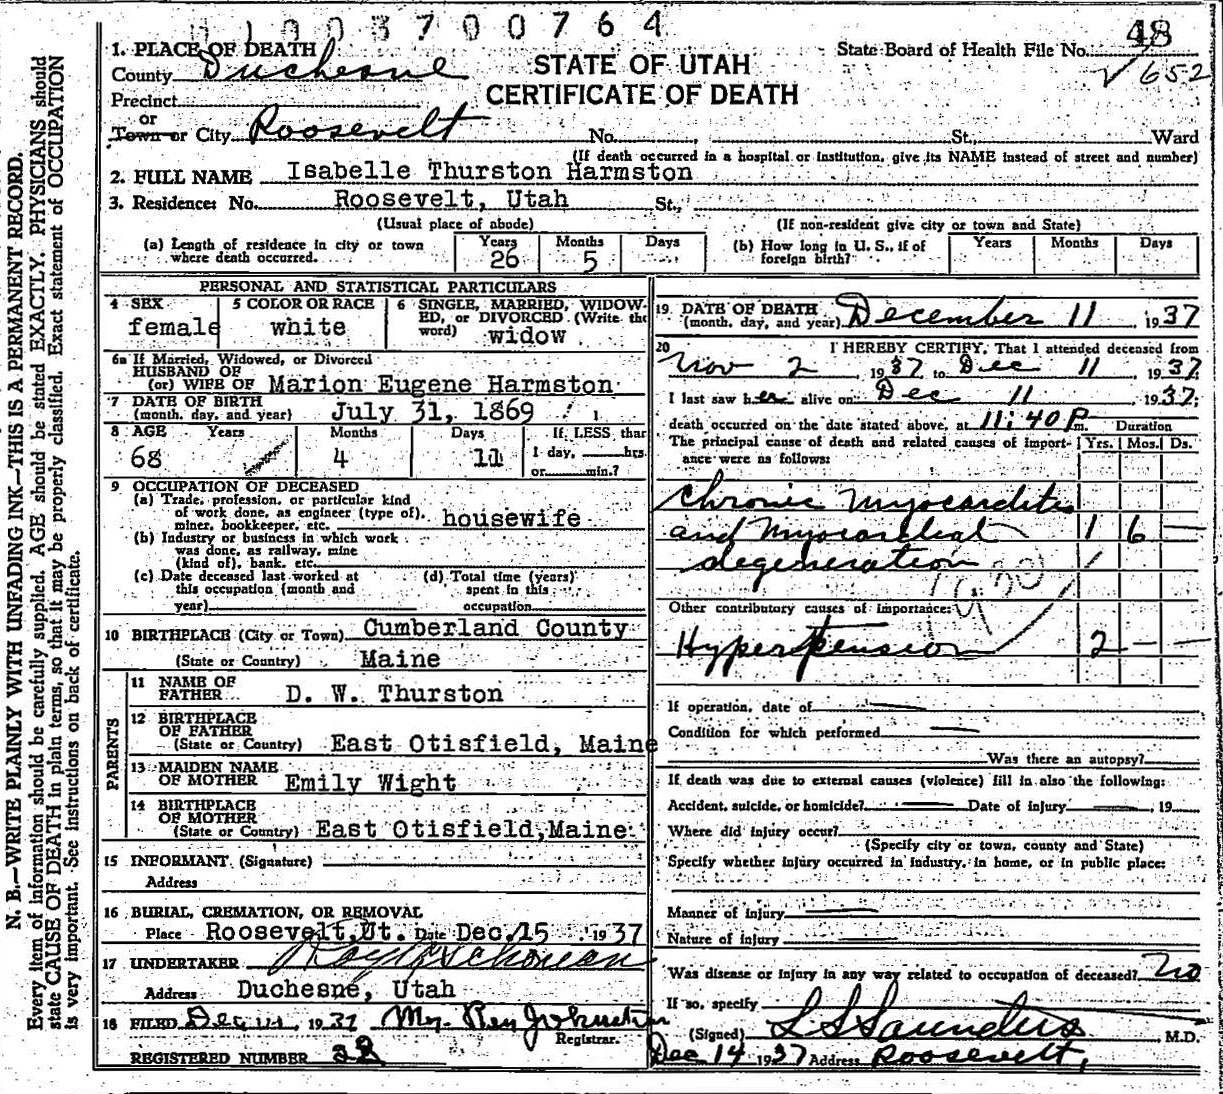 1003700764
1. PLACE OF DEATH
County Duchesne
STATE OF UTAH
CERTIFICATE OF DEATH
State Board of Health File No. 48
✓ 652
Precinct
or
Town or City Roosevelt No. St., Ward
(If death occurred in a hospital or institution, give its NAME instead of street and number)
2. FULL NAME Isabelle Thurston Harmston
3. Residence: No. Roosevelt, Utah St.,
(Usual place of abode) (If non-resident give city or town and State)
(a) Length of residence in city or town where death occurred. Years 26 Months 5 Days
(b) How long in U. S., if of foreign birth? Years Months Days
PERSONAL AND STATISTICAL PARTICULARS
4 SEX female
5 COLOR OR RACE white
6 SINGLE, MARRIED, WIDOWED, or DIVORCED (Write the word) widow
6a If Married, Widowed, or Divorced
HUSBAND OF
(or) WIFE OF Marion Eugene Harmston
7 DATE OF BIRTH
(month, day, and year) July 31, 1869
8 AGE Years 68 Months 4 Days 11 If LESS than 1 day, hrs. or min.?
9 OCCUPATION OF DECEASED
(a) Trade, profession, or particular kind
of work done, as engineer (type of),
miner, bookkeeper, etc. housewife
(b) Industry or business in which work
was done, as railway, mine
(kind of), bank, etc.
(c) Date deceased last worked at
this occupation (month and
year)
(d) Total time (years)
spent in this
occupation
10 BIRTHPLACE (City or Town) Cumberland County
(State or Country) Maine
PARENTS
11 NAME OF
FATHER D. W. Thurston
12 BIRTHPLACE
OF FATHER
(State or Country) East Otisfield, Maine
13 MAIDEN NAME
OF MOTHER Emily Wight
14 BIRTHPLACE
OF MOTHER
(State or Country) East Otisfield, Maine
15 INFORMANT (Signature)
Address
16 BURIAL, CREMATION, OR REMOVAL
Place Roosevelt, Ut. Date Dec. 15 1937
17 UNDERTAKER
Address Duchesne, Utah
18 FILED 1937
Registrar.
REGISTERED NUMBER
19 DATE OF DEATH
(month, day, and year) December 11 1937
20 I HEREBY CERTIFY, That I attended deceased from
Nov 2 1937 to Dec 11 1937
I last saw her alive on Dec 11 1937;
death occurred on the date stated above, at 11:40 P.m. Duration
The principal cause of death and related causes of importance were as follows: Yrs. Mos. Ds.
Chronic Myocarditis
and Myocardial 1 6 —
degeneration
Other contributory causes of importance:
Hypertension 2 — —
If operation, date of
Condition for which performed
Was there an autopsy?
If death was due to external causes (violence) fill in also the following:
Accident, suicide, or homicide? Date of injury , 19
Where did injury occur?
(Specify city or town, county and State)
Specify whether injury occurred in industry, in home, or in public place:
Manner of injury
Nature of injury
Was disease or injury in any way related to occupation of deceased? no
If so, specify
(Signed) L S Saunders, M.D.
Dec 14 1937 Address Roosevelt,
N. B.—WRITE PLAINLY WITH UNFADING INK—THIS IS A PERMANENT RECORD.
Every item of information should be carefully supplied. AGE should be stated EXACTLY. PHYSICIANS should
state CAUSE OF DEATH in plain terms, so that it may be properly classified. Exact statement of OCCUPATION
is very important. See instructions on back of certificate.